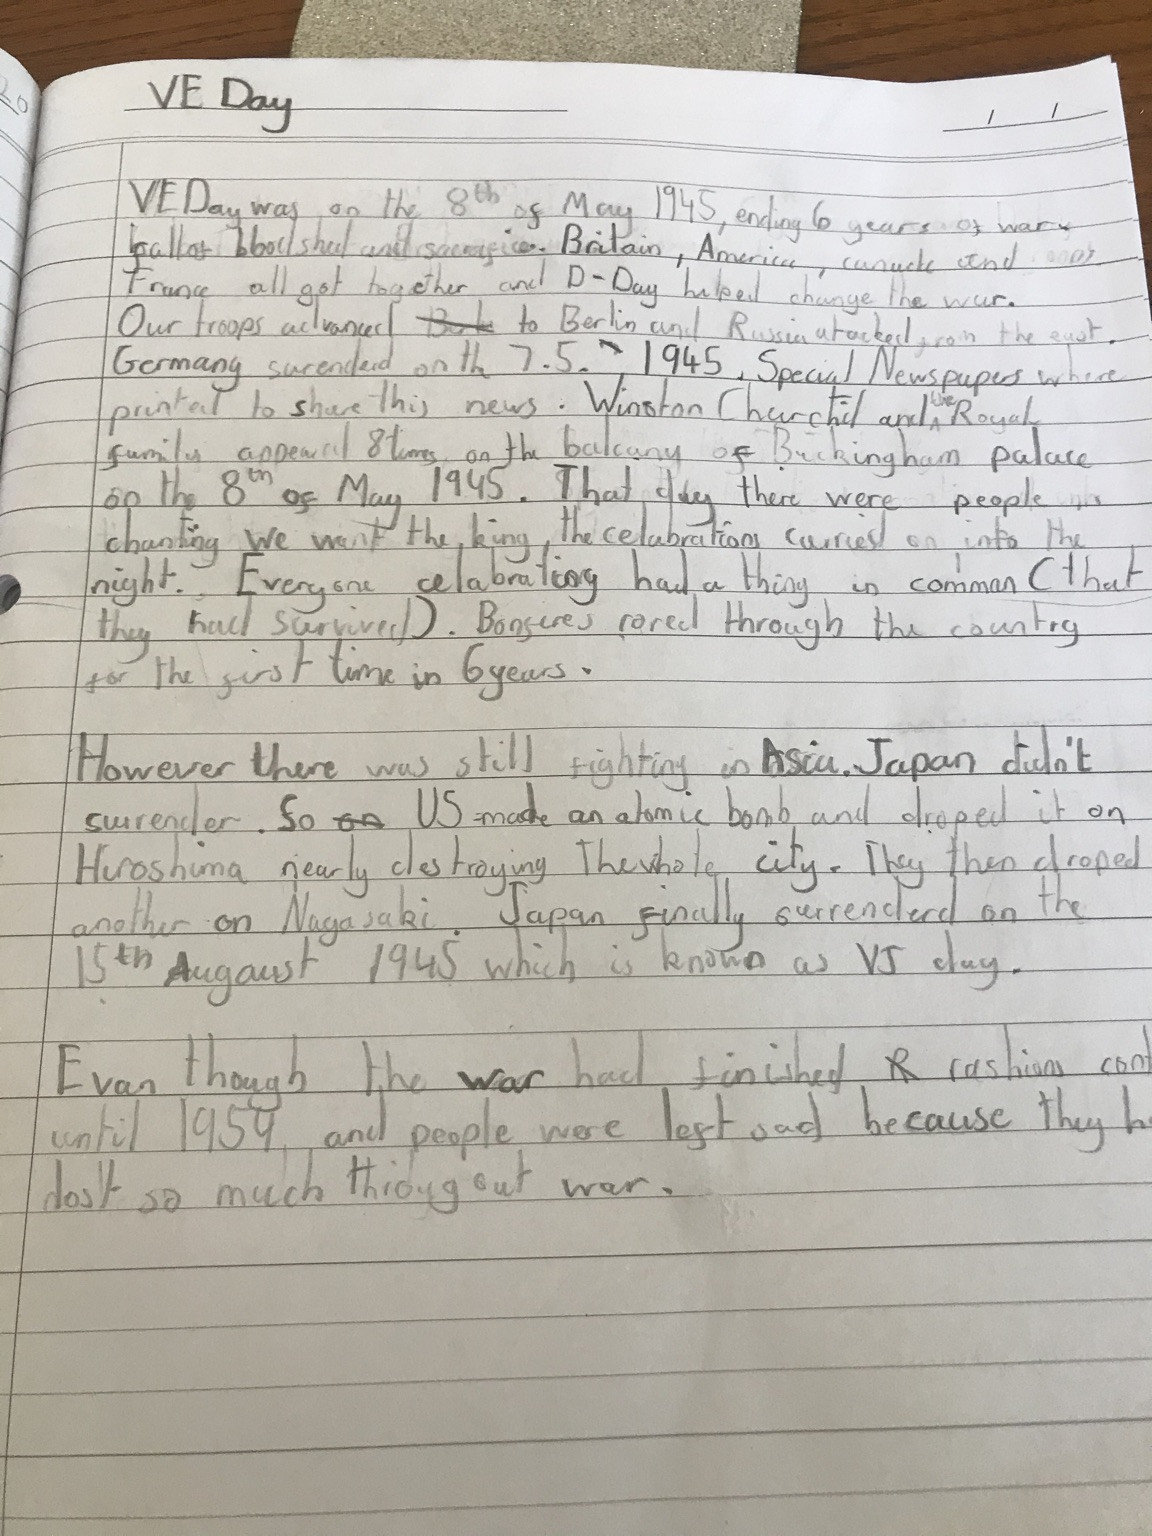 20
VE Day
VE Day was on the 8th of May 1945, ending 6 years of war
bloodshed and sacrifice. Britain, America, canada and
France all got together and D-Day helped change the war.
Our troops advanced to Berlin and Russia atacked from the east.
Germany surenderd on th 7.5. 1945. Special Newspapers where
printed to share this news. Winston Churchil and the Royal
family appeared 8 times on the balcany of Buckingham palace
on the 8th of May 1945. That day there were people
chanting we want the king, the celabrations carried on into the
night. Everyone celabrating had a thing in comman (that
they had survived). Bonfires rored through the country
for the first time in 6 years.
However there was still fighting in Asia. Japan didn't
surrender. So US made an atomic bomb and droped it on
Hiroshima nearly destroying The whole city. They then droped
another on Nagasaki. Japan finally surrenderd on the
15th Augaust 1945 which is known as VJ day.
Evan though the war had finished rashions cont
until 1954, and people were left sad because they h
lost so much war.